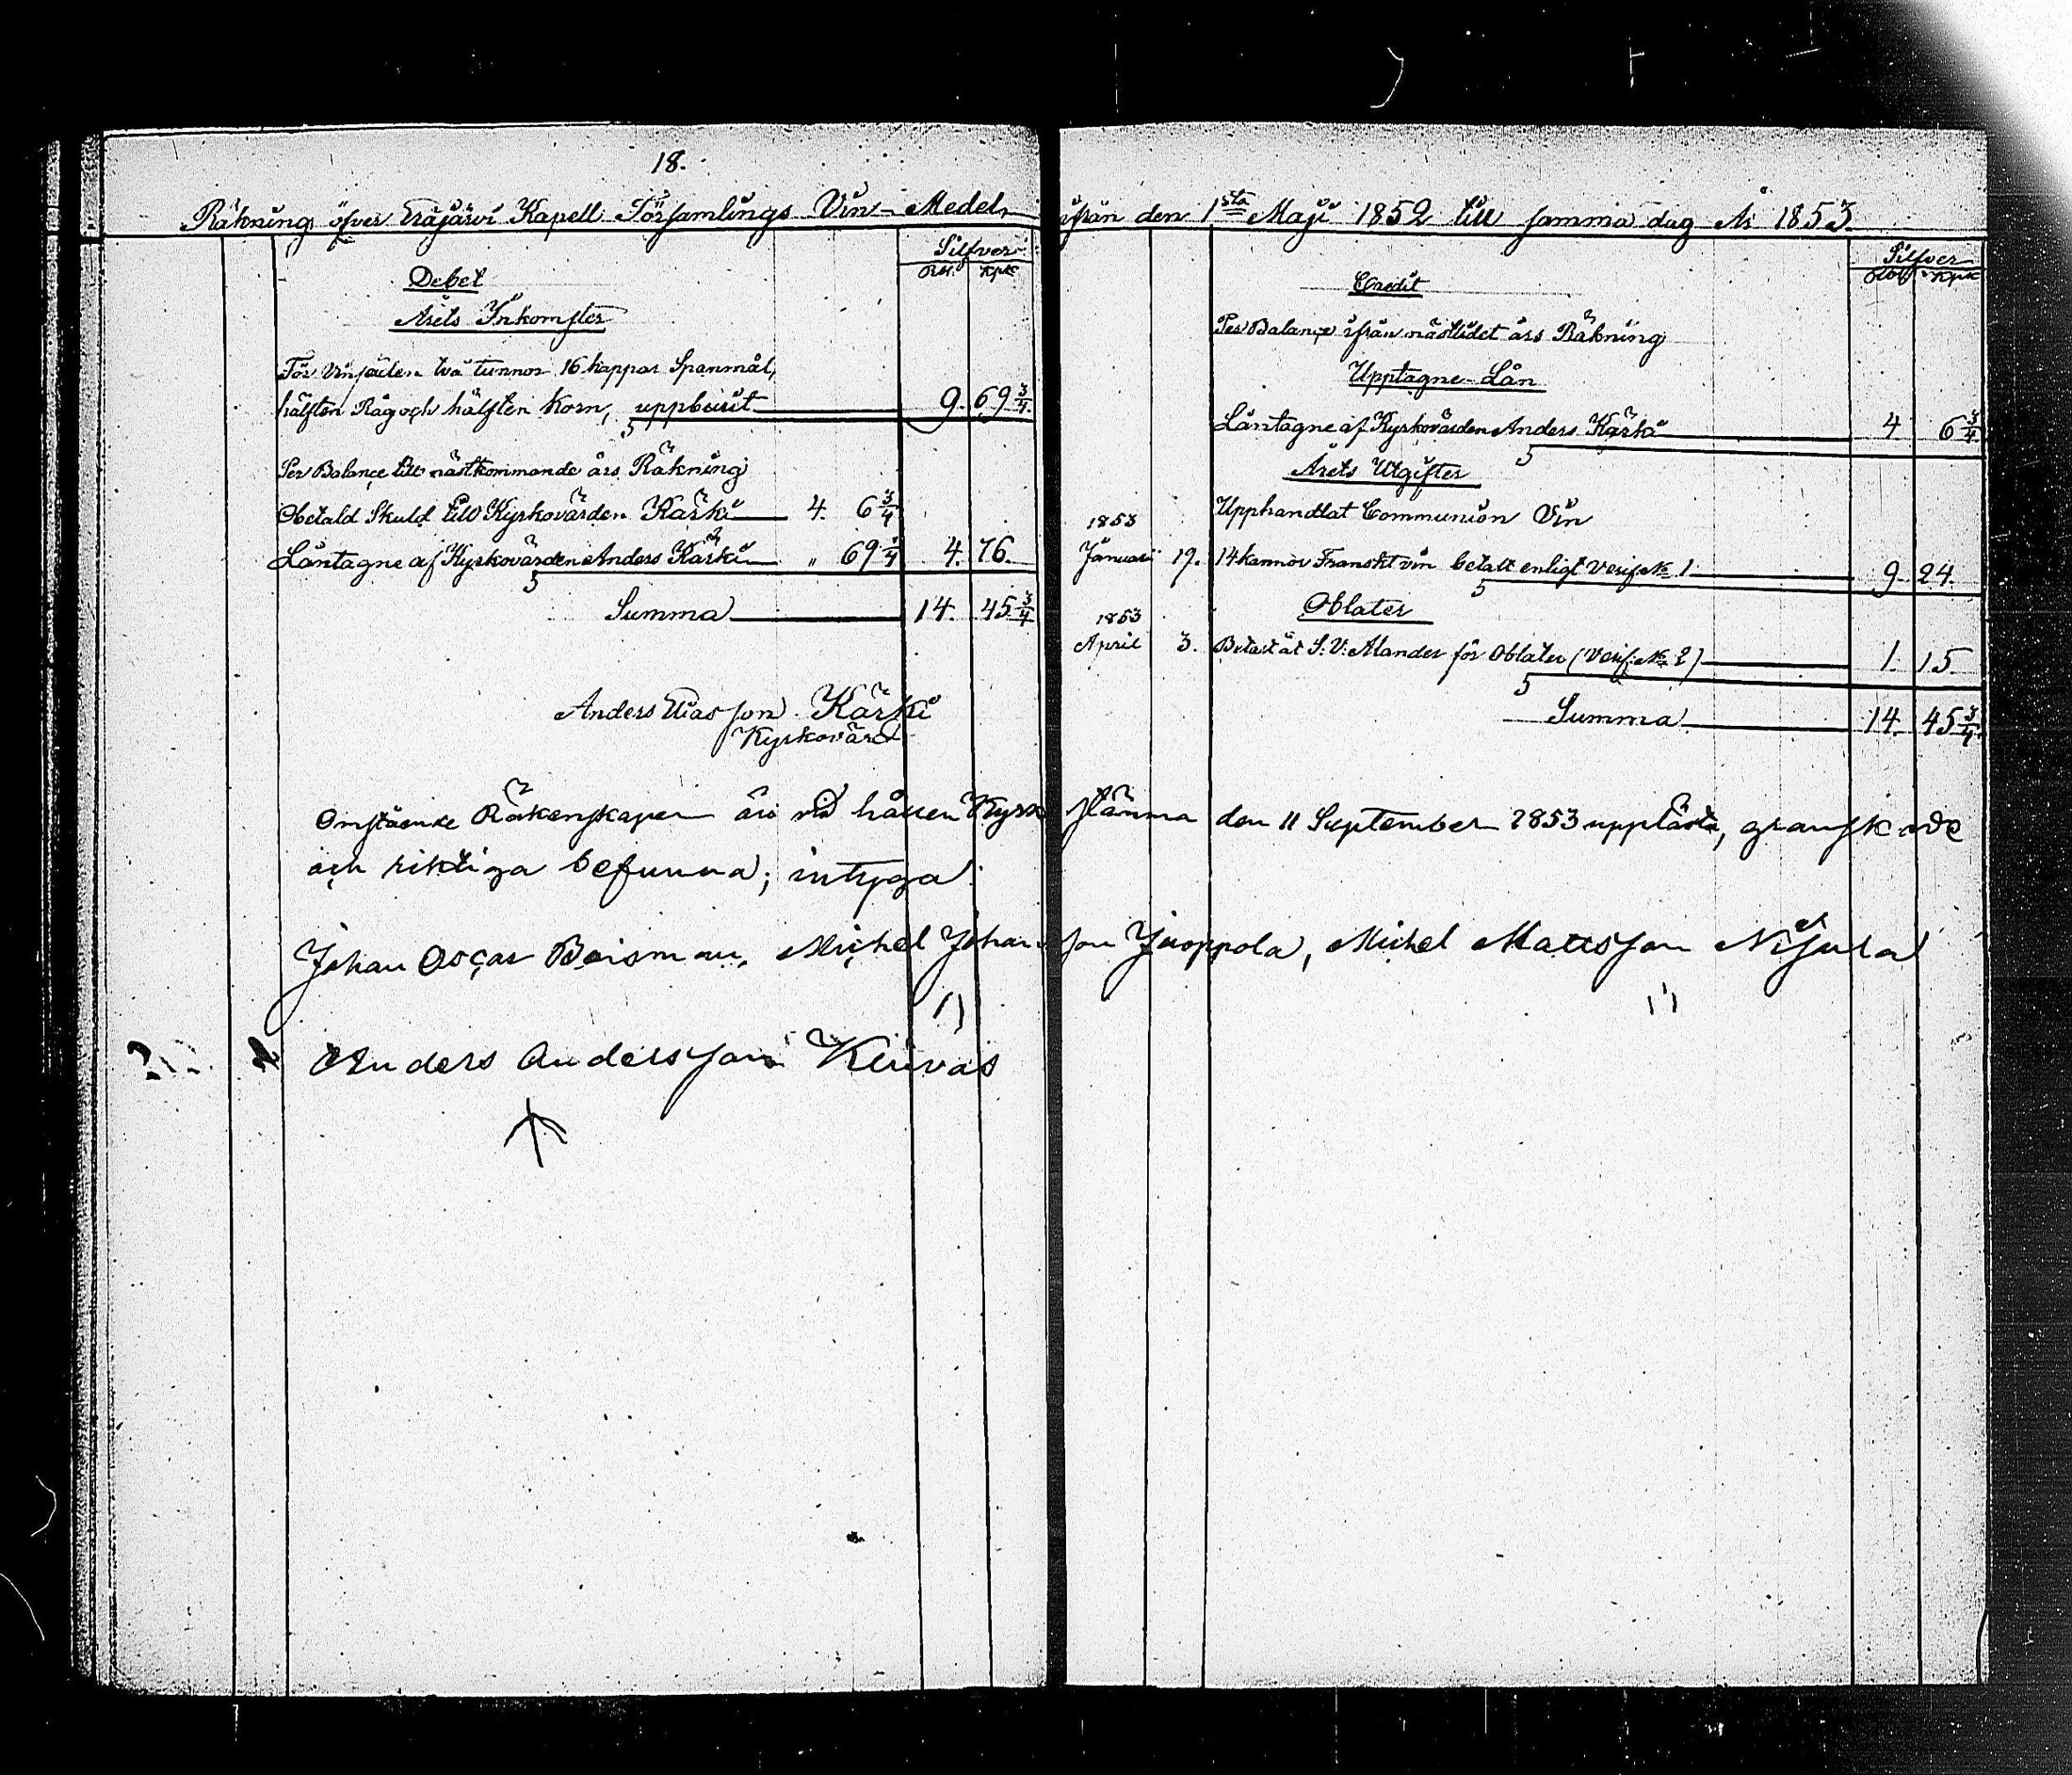 18.
Räkning öfver Eräjärvi Kapell Församlings Vin-Medel, ifrån den 1sta Maji 1852 till samma dag År 1853.
Silfver
Rbl. Kpk
Debet
Årets Inkomster
För Vinsäden två tunnor 16 kappar Spanmål,
hälften Råg och hälften Korn, uppburit 9. 69 3/4.
Per Balançe till nästkommande års Räkning
Obetald Skuld till Kyrkovärden Kärki 4. 6 3/4
Låntagne af Kyrkovärden Anders Kärki " 69 1/4 4. 76.
Summa 14. 45 3/4
Anders son Kärki
Kyrkovärd
Silfver
Rbl Kpk
Credit
Per Balançe ifrån nästlidet års Räkning
Upptagne Lån
Låntagne af Kyrkovärden Anders Kärki 4 6 3/4
Årets Utgifter
Upphandlat Communion Vin
1853
Januarii 19. 14 kannor Franskt vin betalt enligt Verif. No 1 9. 24.
Oblater
1853
April 3. Betalt åt S: V: Alander för Oblater (Verif: No 2) 1. 15
Summa 14. 45 3/4.
Omstående Räkenskaper äro vid hållen Kyrkstämma den 11 September 1853 upplästa, granskade
och riktiga befunna; intyga:
Johan Oscar Michel Johansson Juoppola, Michel Mattsson
Anders Andersson